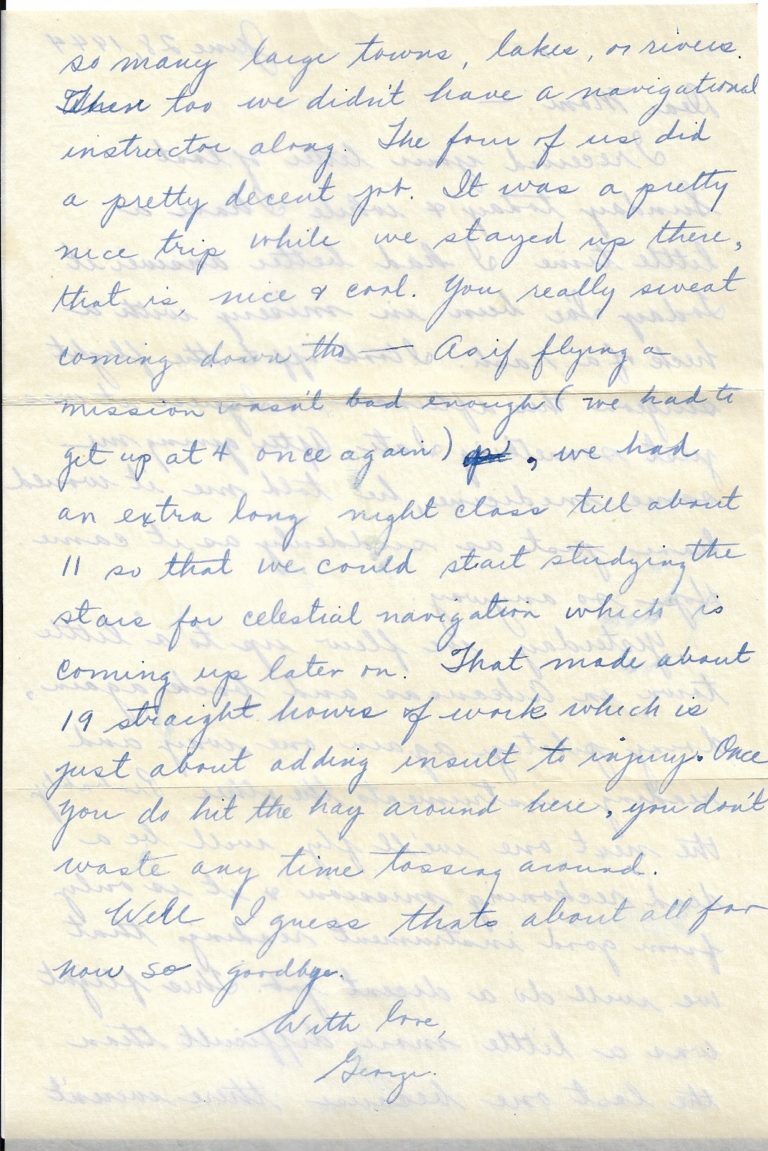 so many large towns, lakes, or rivers.
Then too we didn't have a navigational
instructor along. The four of us did
a pretty decent job. It was a pretty
nice trip while we stayed up there,
that is, nice & cool. You really sweat
coming down tho — As if flying a
mission wasn't bad enough (we had to
get up at 4 once again) , we had
an extra long night class till about
11 so that we could start studying the
stars for celestial navigation which is
coming up later on. That made about
19 straight hours of work which is
just about adding insult to injury. Once
you do hit the hay around here, you don't
waste any time tossing around.
Well I guess that's about all for
now so goodbye.
With love,
George.